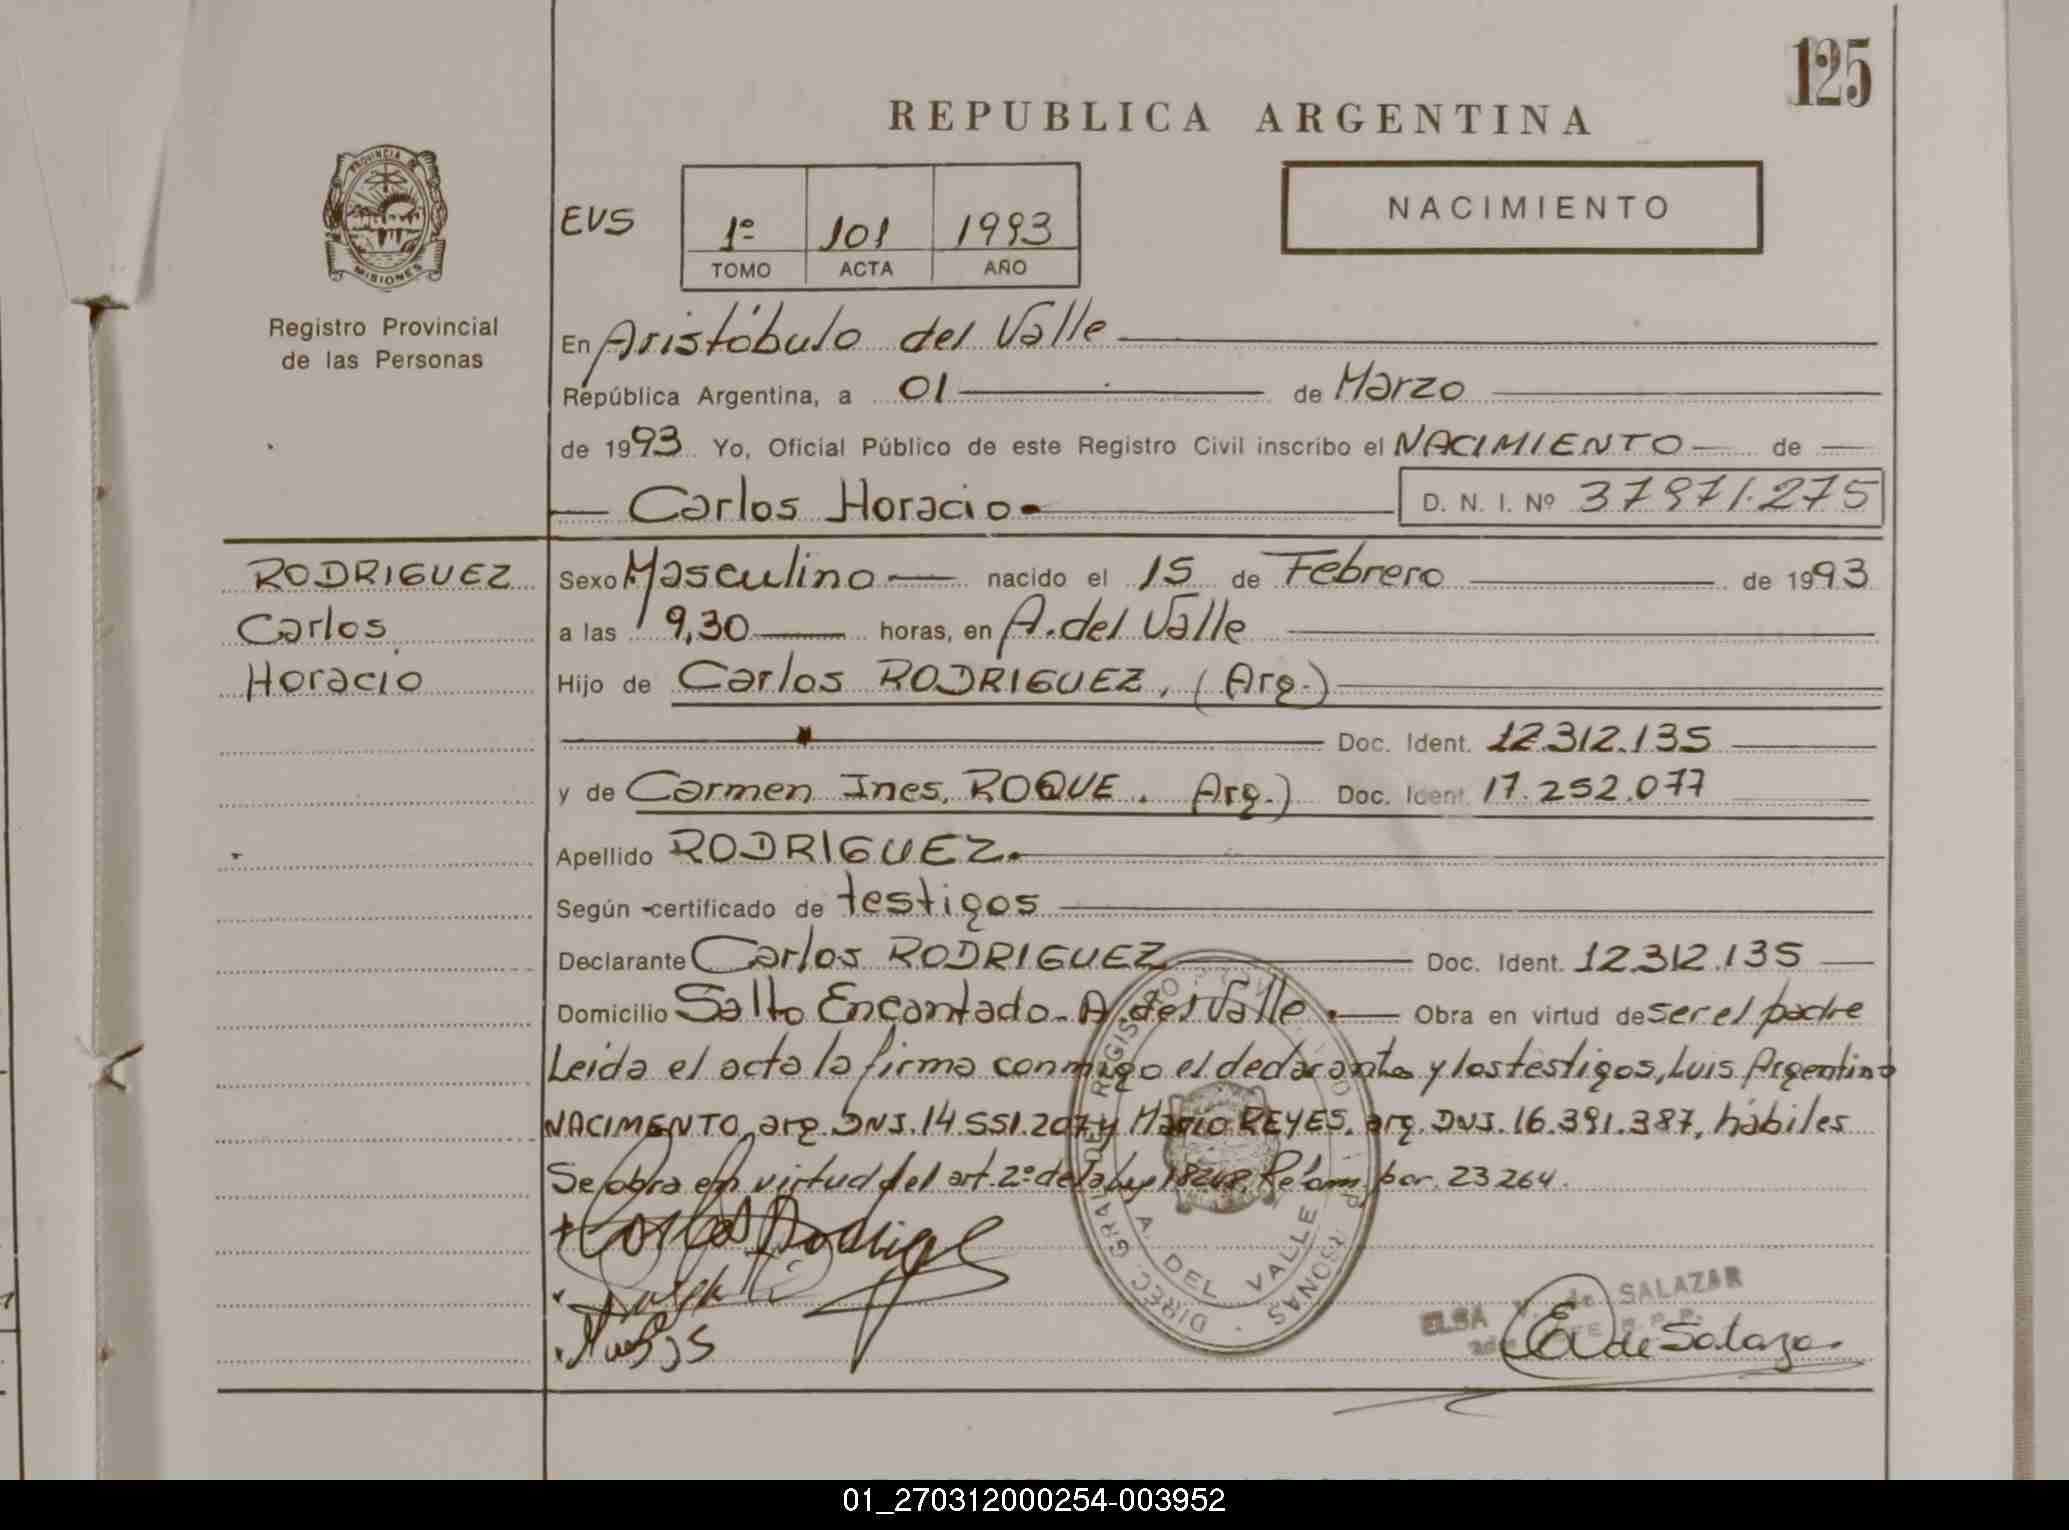 125
REPUBLICA ARGENTINA
PROVINCIA DE
MISIONES
Registro Provincial
de las Personas
EVS
1º 101 1993
TOMO ACTA AÑO
NACIMIENTO
En Aristóbulo del Valle
República Argentina, a 01 de Marzo
de 1993 Yo, Oficial Público de este Registro Civil inscribo el NACIMIENTO de
Carlos Horacio
D. N. I. Nº 37971.275
RODRIGUEZ
Carlos
Horacio
Sexo Masculino nacido el 15 de Febrero de 1993
a las 9,30 horas, en A. del Valle
Hijo de Carlos RODRIGUEZ, (Arg.)
Doc. Ident. 12.312.135
y de Carmen Ines, ROQUE. Arg.) Doc. Ident. 17.252.077
Apellido RODRIGUEZ.
Según certificado de testigos
Declarante Carlos RODRIGUEZ Doc. Ident. 12.312.135
Domicilio Salto Encantado - A. del Valle. Obra en virtud de ser el padre
Leida el acta la firma conmigo el declarante y los testigos, Luis Argentino
NACIMENTO, arg. DNI. 14.551.207 y Mario REYES, arg. DNI. 16.391.387, hábiles
Se obra en virtud del art. 2º de la Ley 18248, Ref. por. 23264.
Carlos Rodrigue
DIREC. GRAL. DEL REGISTRO
A. DEL VALLE
ELSA V. de SALAZAR
E de Salazar
01_270312000254-003952